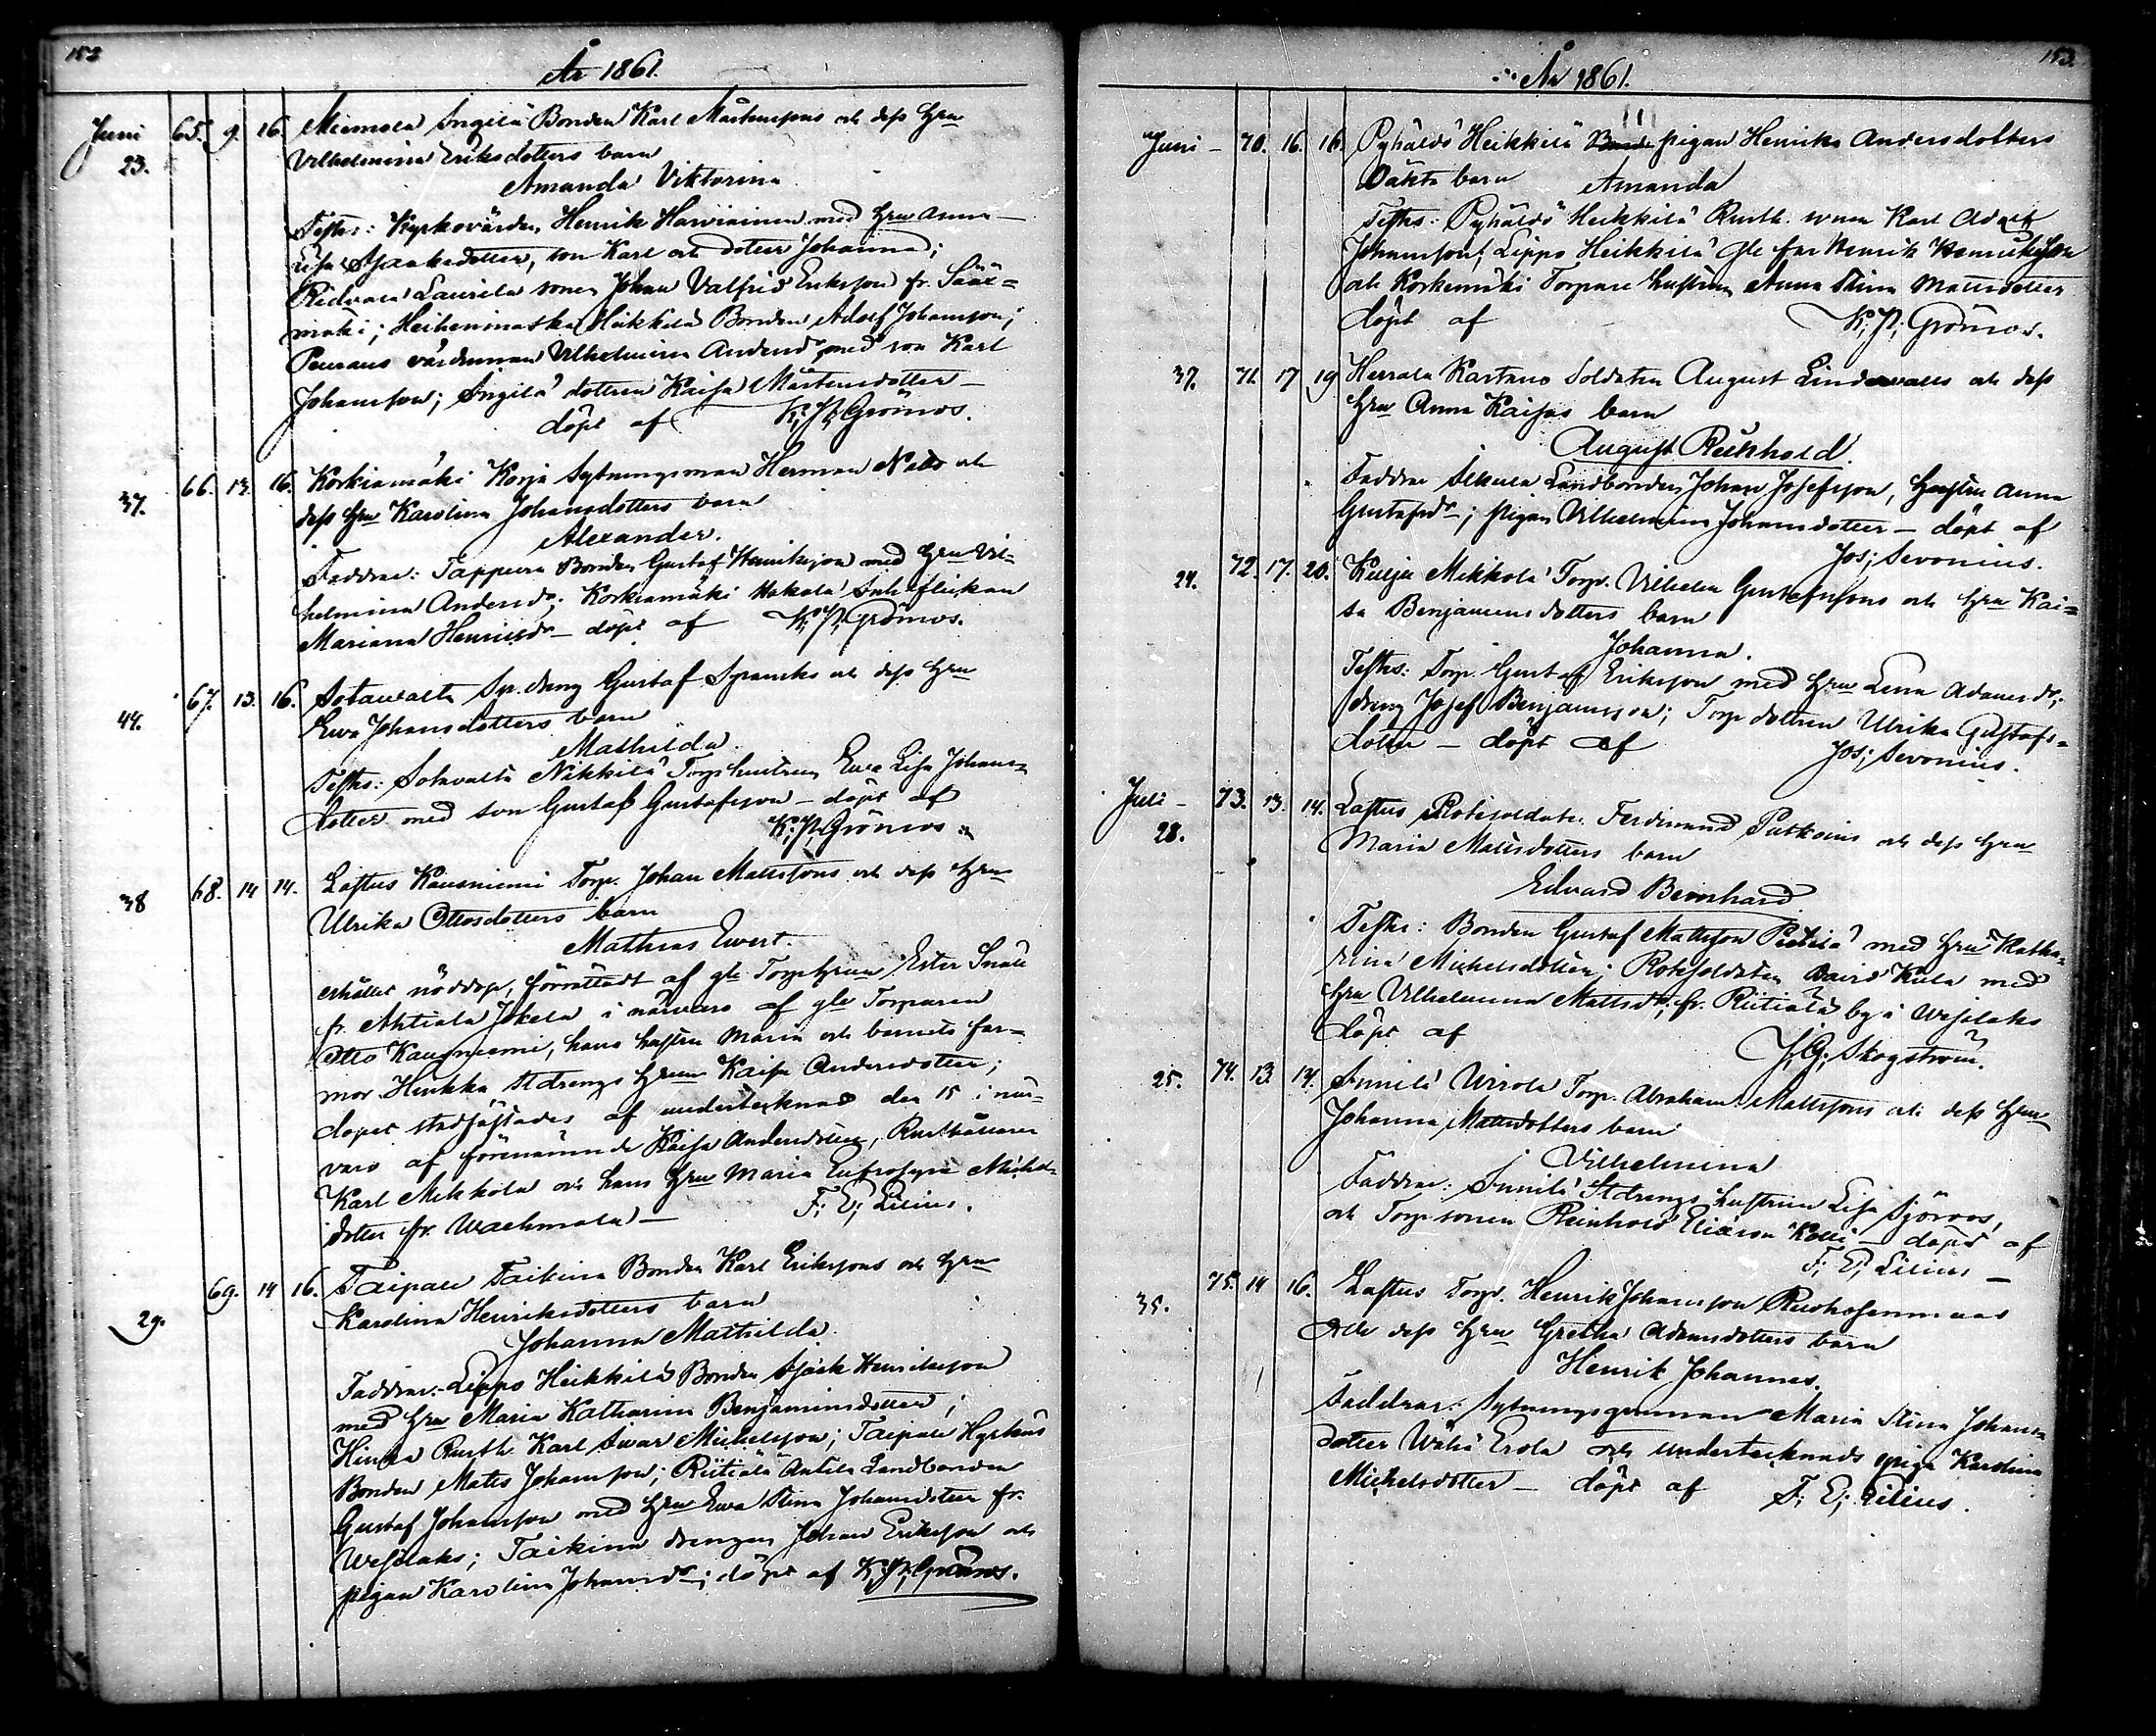 153
År 1861.
Juni 65. 9. 16. Miemola Ingilä Bonden Karl Mårtenssons och dess hru
23. Vilhelmina Eriksdotters barn
Amanda Viktorina
Testes: Kyrkovärden Henrik Harviainen med hru Anna
Lisa Isaaksdotter, son Karl och dotter Johanna;
Laurila sonen Johan Valfrid Eriksson fr. Sääx-
mäki; Heikkilä Bonden Adolf Johansson;
värdinnan Vilhelmina Andersdr med son Karl
Johansson; Ingilä dottren Kaisa Mårtensdotter
döpt af K. J. Grönroos.
66. 13. 16. Korkiamäki Korja Sytningsman Herman och
37. dess hru Karolina Johansdotters barn
Alexander.
Faddrar: Bonden Gustaf Henriksson med hru Vil-
helmina Andersdr; Korkiamäki flickan
Mariana Henriksdr döpt af K. J. Grönroos.
67. 13. 16. Sotavalta Gustaf och dess hru
44. Eva Johansdotters barn
Mathilda.
Testes: Sotavalta Nikkilä Torp. hustrun Eva Lisa Johans-
dotter med son Gustaf Gustafsson döpt af
K. J. Grönroos
68. 14 14. Loftus Kausniemi Torp. Johan Mattssons och dess hru
38 Ulrika Ottosdotters barn
Mathias Evert.
erhållit nöddop, förrättadt af gla Torp. hrun Ester
fr. Ahtiala Jokela i närvaro af gle Torparen
Otto Kausniemi, hans hustru Maria och barnets far-
mor Stdrengs hrun Kaisa Andersdotter;
dopet stadfästades af undertecknad den 15 i när-
varo af förenämnde Kaisa Andersdotter, Rusthållaren
Karl Mikkola och hans hru Maria Eufrosyne Michels-
dotter fr. Wachmola F. E. Lilius.
69. 14 16. Taipale Taikina Bonden Karl Erikssons och hru
29. Karolina Henriksdotters barn
Johanna Mathilda.
Faddrar: Lippo Heikkilä Bonden Isack Henriksson
med hru Maria Katharina Benjaminsdotter;
Rusth. Karl Ivar Michelsson; Taipale
Bonden Matts Johansson; Riitiälä Antila Landbonden
Gustaf Johansson med hru Eva Stina Johansdotter fr.
Wesilaks; Taikina drengen Johan Eriksson och
pigan Karolina Johansdr; döpt af K. J. Grönroos.
153.
År 1861.
Juni 70. 16. 16. Pyhältö Heikkilä pigan Henrika Andersdotters
oäkta barn Amanda
Testes: Pyhältö Heikkilä Rusth. sonen Karl Adolf
Johansson; Lippo Heikkilä gle far Henrik Henriksson
och Korkemäki Torpare hustrun Anna Stina Mattsdotter
döpt af K. J. Grönroos.
37. 71. 17 19 Herrala Kartano Soldaten August Lindevalls och dess
hru Anna Kaisas barn
August Reinhold.
Faddrar Landbonden Johan Josefsson, hustru Anna
Gustafsdr; pigan Vilhelmina Johansdotter döpt af
Jos; Sevonius.
24. 72. 17. 20. Mikkola Torp. Vilhelm Gustafssons och hru Kai-
sa Benjaminsdotters barn
Johanna.
Testes: Torp. Gustaf Eriksson med hru Lena Adamsdr;
dreng Josef Benjaminsson; Torp. dottren Ulrika Gustafs-
dotter döpt af Jos; Sevonius.
Juli 73. 13. 14. Loftus Rotesoldaten Ferdinand och dess hru
28. Maria Mattsdotters barn
Edvard Bernhard
Testes: Bonden Gustaf Mattsson med hru Katha-
rina Michelsdotter; Rotesoldaten David med
hru Vilhelmina Mattsdr; fr. Riitiälä by i Wesilaks
döpt af J. G. Skogström.
25. 74. 13. 14. Sunila Torp. Abraham Mattssons och dess hru
Johanna Mattsdotters barn
Vilhelmina
Faddrar: Sunila Stdrengs hustrun Lisa Sjöroos,
och Torp sonen Reinhold Eliasson döpt af
F. E. Lilius
35. 75. 14 16. Loftus Torp. Henrik Johansson
och dess hru Gretha Adamsdotters barn
Henrik Johannes.
Faddrar: Maria Stina Johans-
dotter Erola och undertecknads piga Karolina
Michelsdotter döpt af F. E. Lilius.